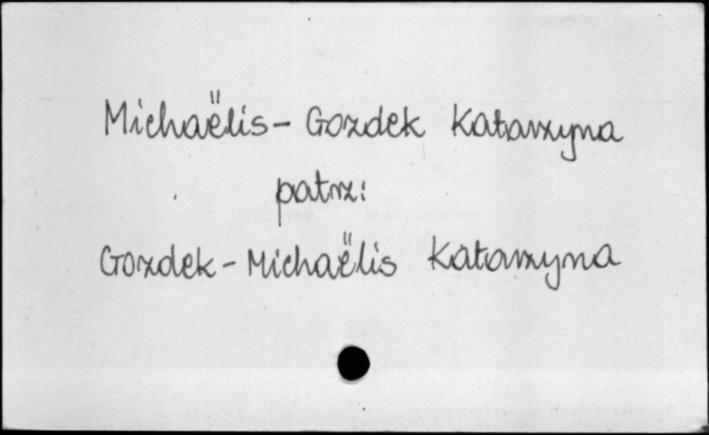 Michaëlis - Gozdek Katarzyna
patrz:
Gozdek - Michaëlis Katarzyna